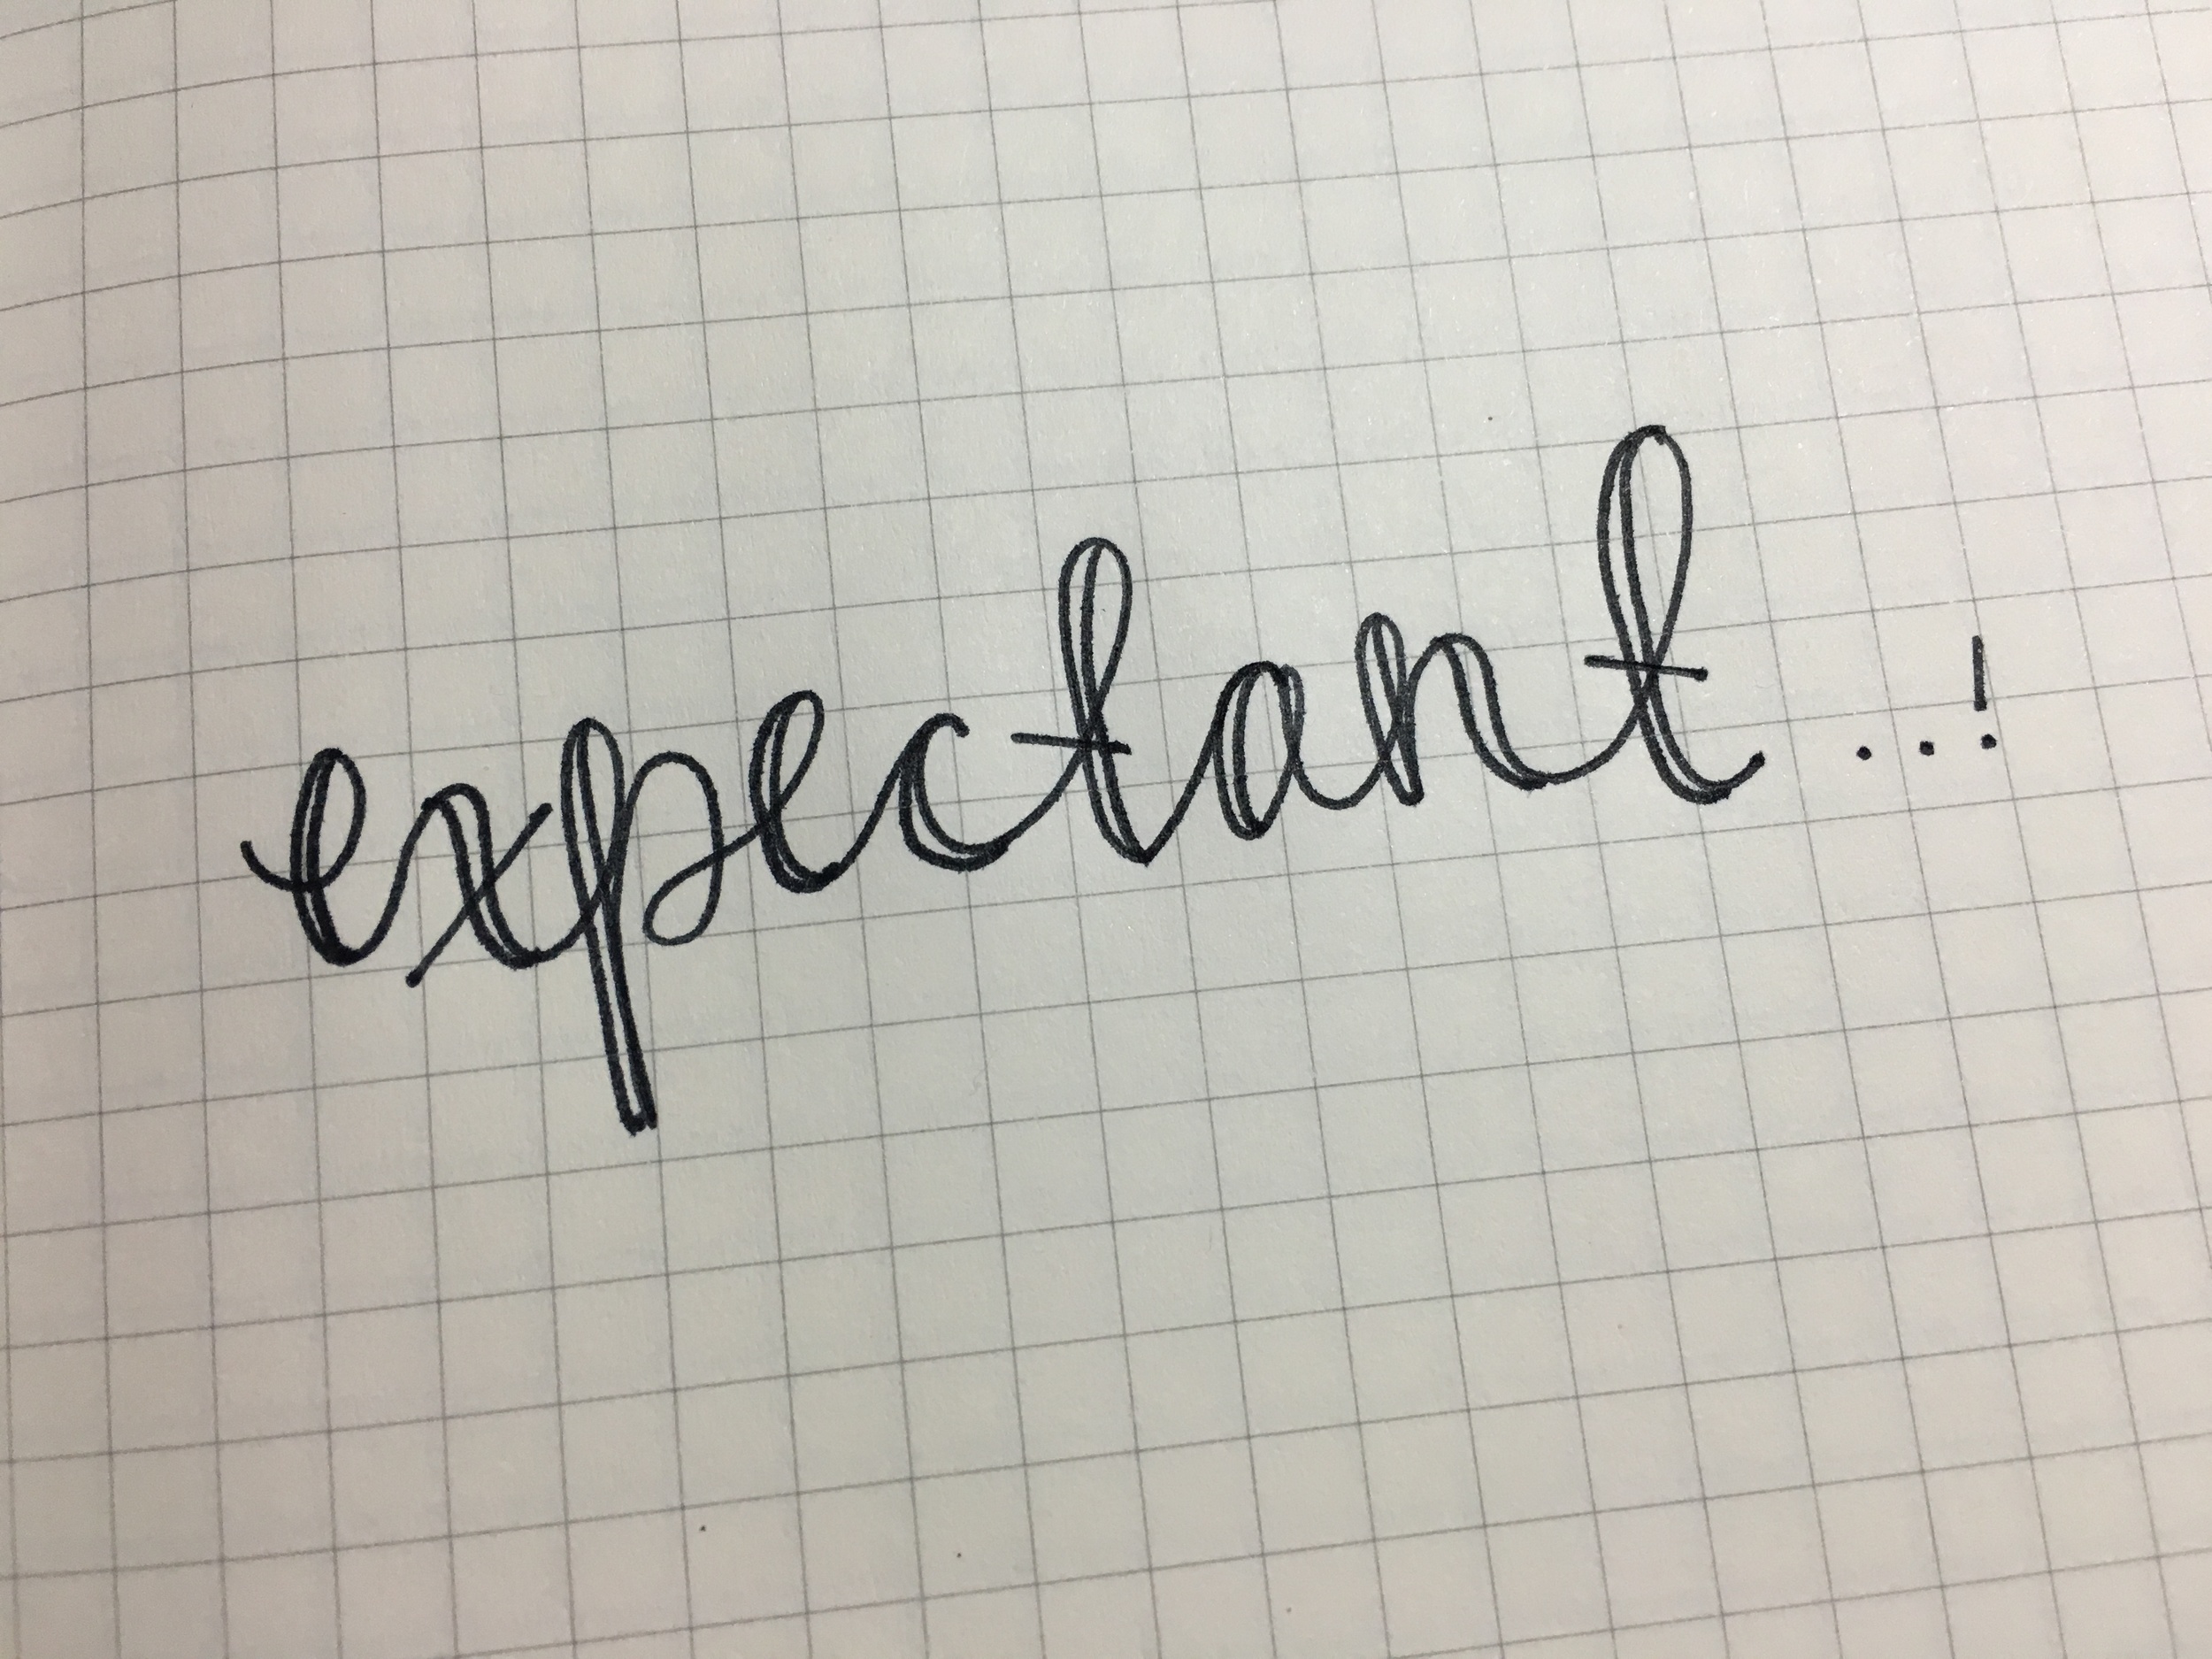 expectant ..!